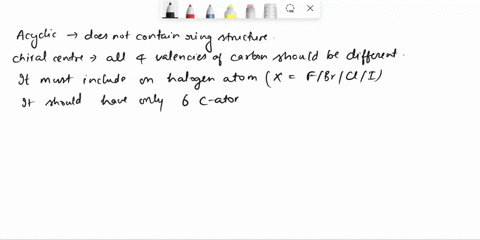 Acyclic → does not contain ring structure.
chiral centre → all 4 valencies of carbon should be different.
It must include on halogen atom (X = F/Br/Cl/I)
It should have only 6 C-ator